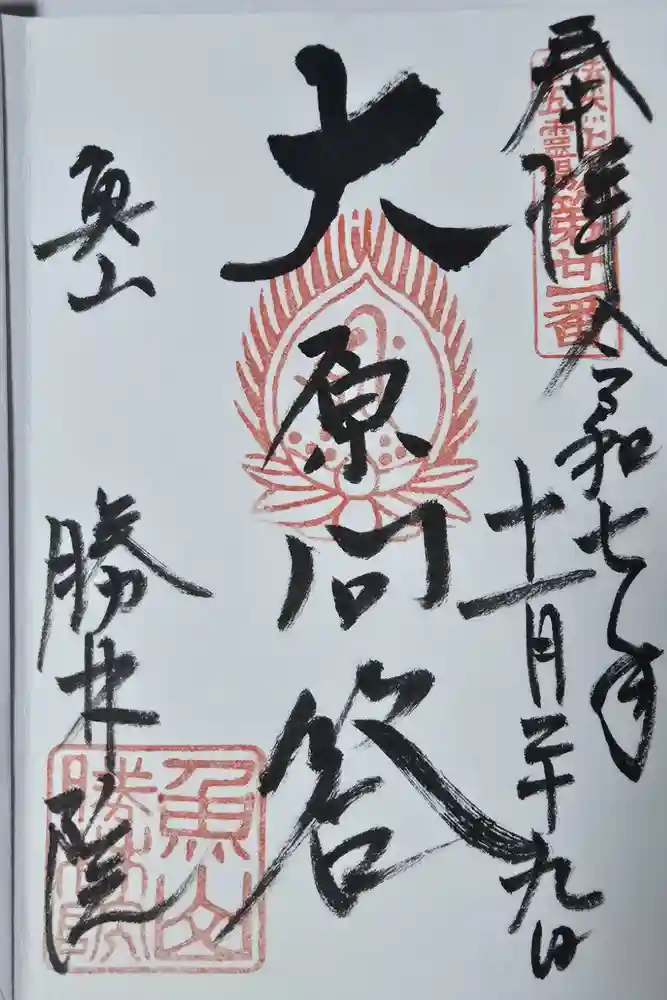 奉拝
令和七年
十一月二十九日
第廿一番
大原問答
魚山
勝林院
魚山
勝林院